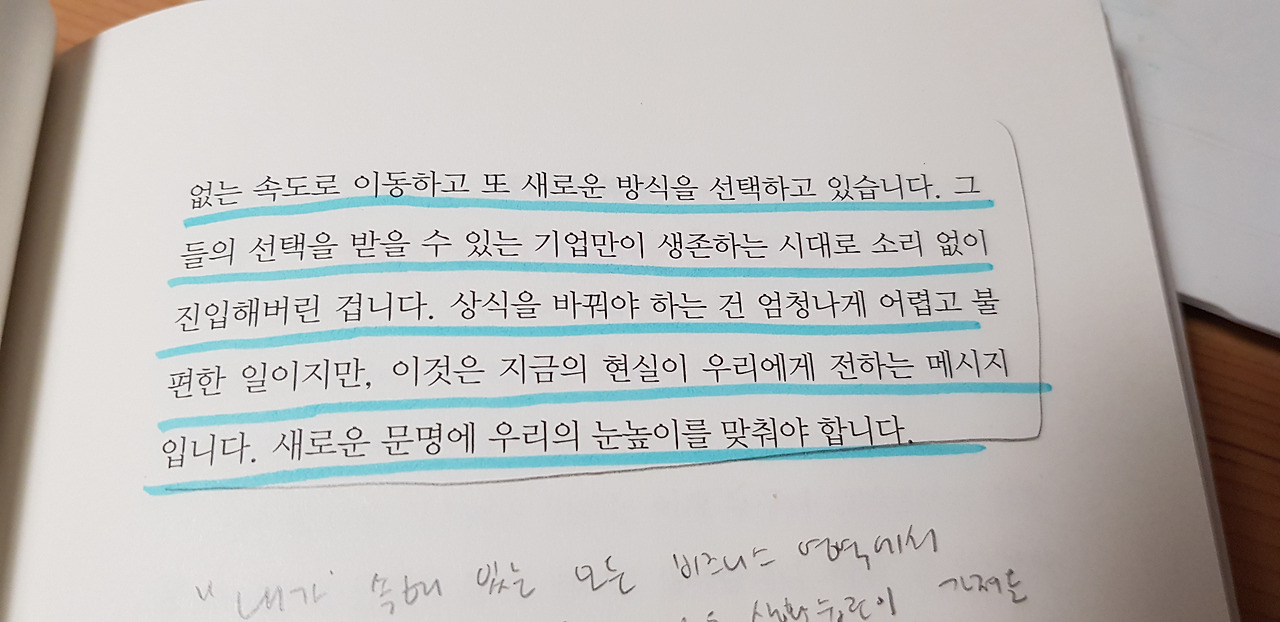 없는 속도로 이동하고 또 새로운 방식을 선택하고 있습니다. 그
들의 선택을 받을 수 있는 기업만이 생존하는 시대로 소리 없이
진입해버린 겁니다. 상식을 바꿔야 하는 건 엄청나게 어렵고 불
편한 일이지만, 이것은 지금의 현실이 우리에게 전하는 메시지
입니다. 새로운 문명에 우리의 눈높이를 맞춰야 합니다.
"내가 속해 있는 모든 비즈니스 영역에서